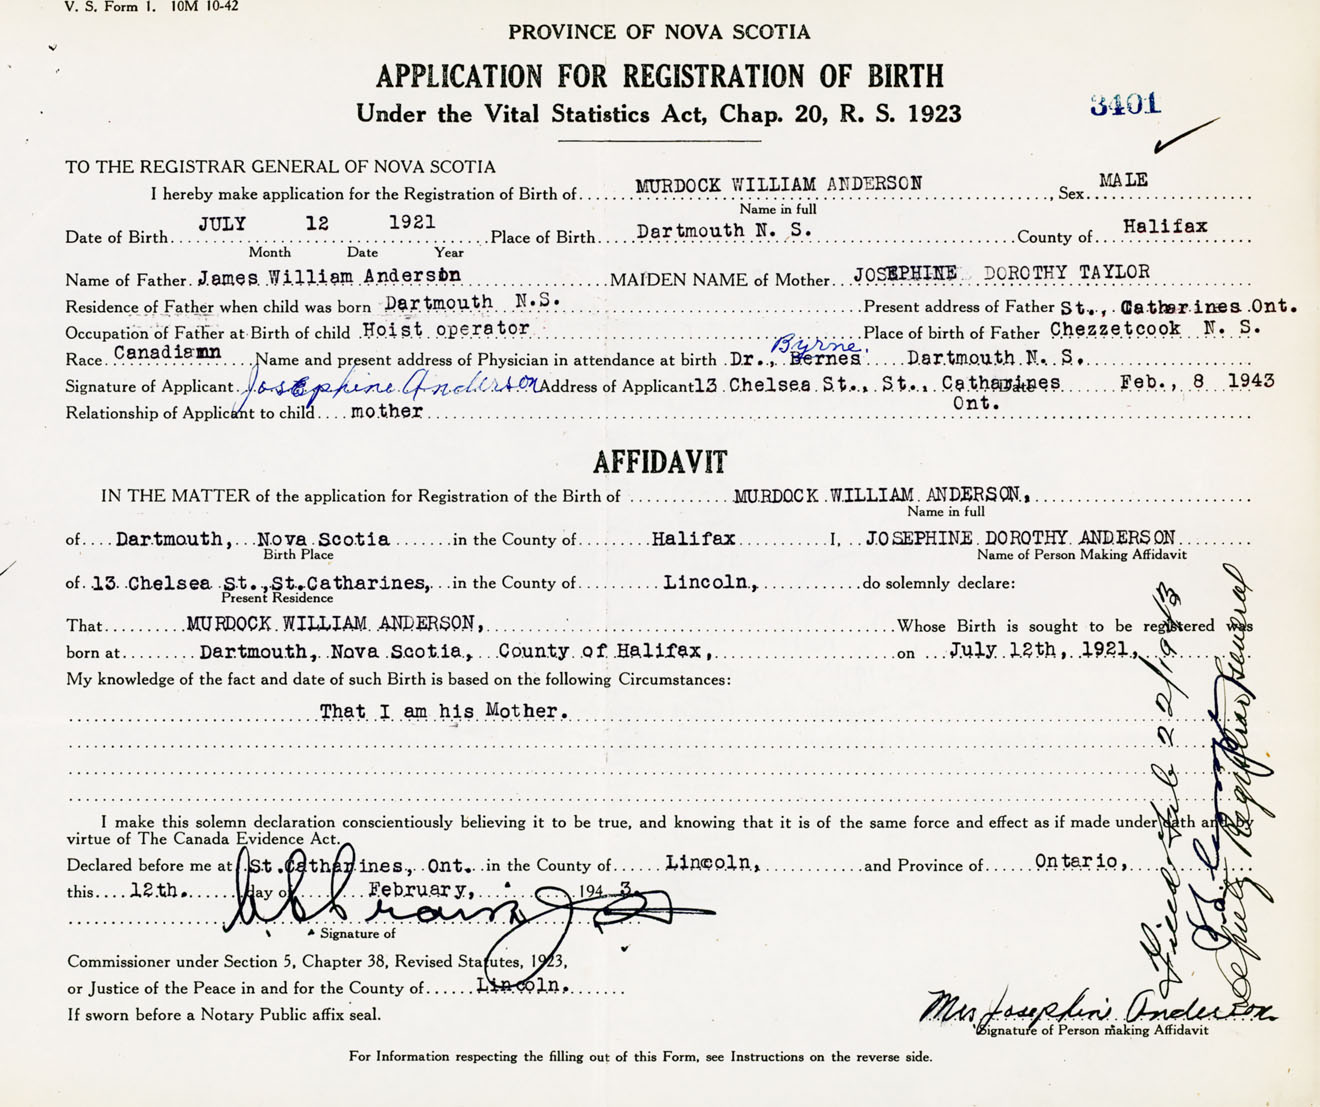 V. S. Form 1. 10M 10-42
PROVINCE OF NOVA SCOTIA
APPLICATION FOR REGISTRATION OF BIRTH
Under the Vital Statistics Act, Chap. 20, R. S. 1923
3401
TO THE REGISTRAR GENERAL OF NOVA SCOTIA
I hereby make application for the Registration of Birth of MURDOCK WILLIAM ANDERSON, Sex MALE
Name in full
Date of Birth JULY 12 1921 Place of Birth Dartmouth N. S. County of Halifax
Month Date Year
Name of Father James William Anderson MAIDEN NAME of Mother JOSEPHINE DOROTHY TAYLOR
Residence of Father when child was born Dartmouth N.S. Present address of Father St., Catharines Ont.
Occupation of Father at Birth of child Hoist operator Place of birth of Father Chezzetcook N. S.
Byrne.
Race Canadiamn Name and present address of Physician in attendance at birth Dr., Bernes Dartmouth N. S.
Signature of Applicant Josephine Anderson Address of Applicant 13 Chelsea St., St., Catharines Date Feb., 8 1943
Ont.
Relationship of Applicant to child mother
AFFIDAVIT
IN THE MATTER of the application for Registration of the Birth of MURDOCK WILLIAM ANDERSON,
Name in full
of Dartmouth, Nova Scotia in the County of Halifax I, JOSEPHINE DOROTHY ANDERSON
Birth Place Name of Person Making Affidavit
of 13 Chelsea St., St.Catharines, in the County of Lincoln, do solemnly declare:
Present Residence
That MURDOCK WILLIAM ANDERSON, Whose Birth is sought to be registered was
born at Dartmouth, Nova Scotia, County of Halifax, on July 12th, 1921,
My knowledge of the fact and date of such Birth is based on the following Circumstances:
That I am his Mother.
I make this solemn declaration conscientiously believing it to be true, and knowing that it is of the same force and effect as if made under oath and
virtue of The Canada Evidence Act.
Declared before me at St.Catharines, Ont. in the County of Lincoln, and Province of Ontario,
this 12th. day of February, 1943.
Signature of
Commissioner under Section 5, Chapter 38, Revised Statutes, 1923,
or Justice of the Peace in and for the County of Lincoln.
If sworn before a Notary Public affix seal.
Mrs Josephine Anderson.
Signature of Person making Affidavit
For Information respecting the filling out of this Form, see Instructions on the reverse side.
Filed Feb 22/1943
Deputy Registrar General